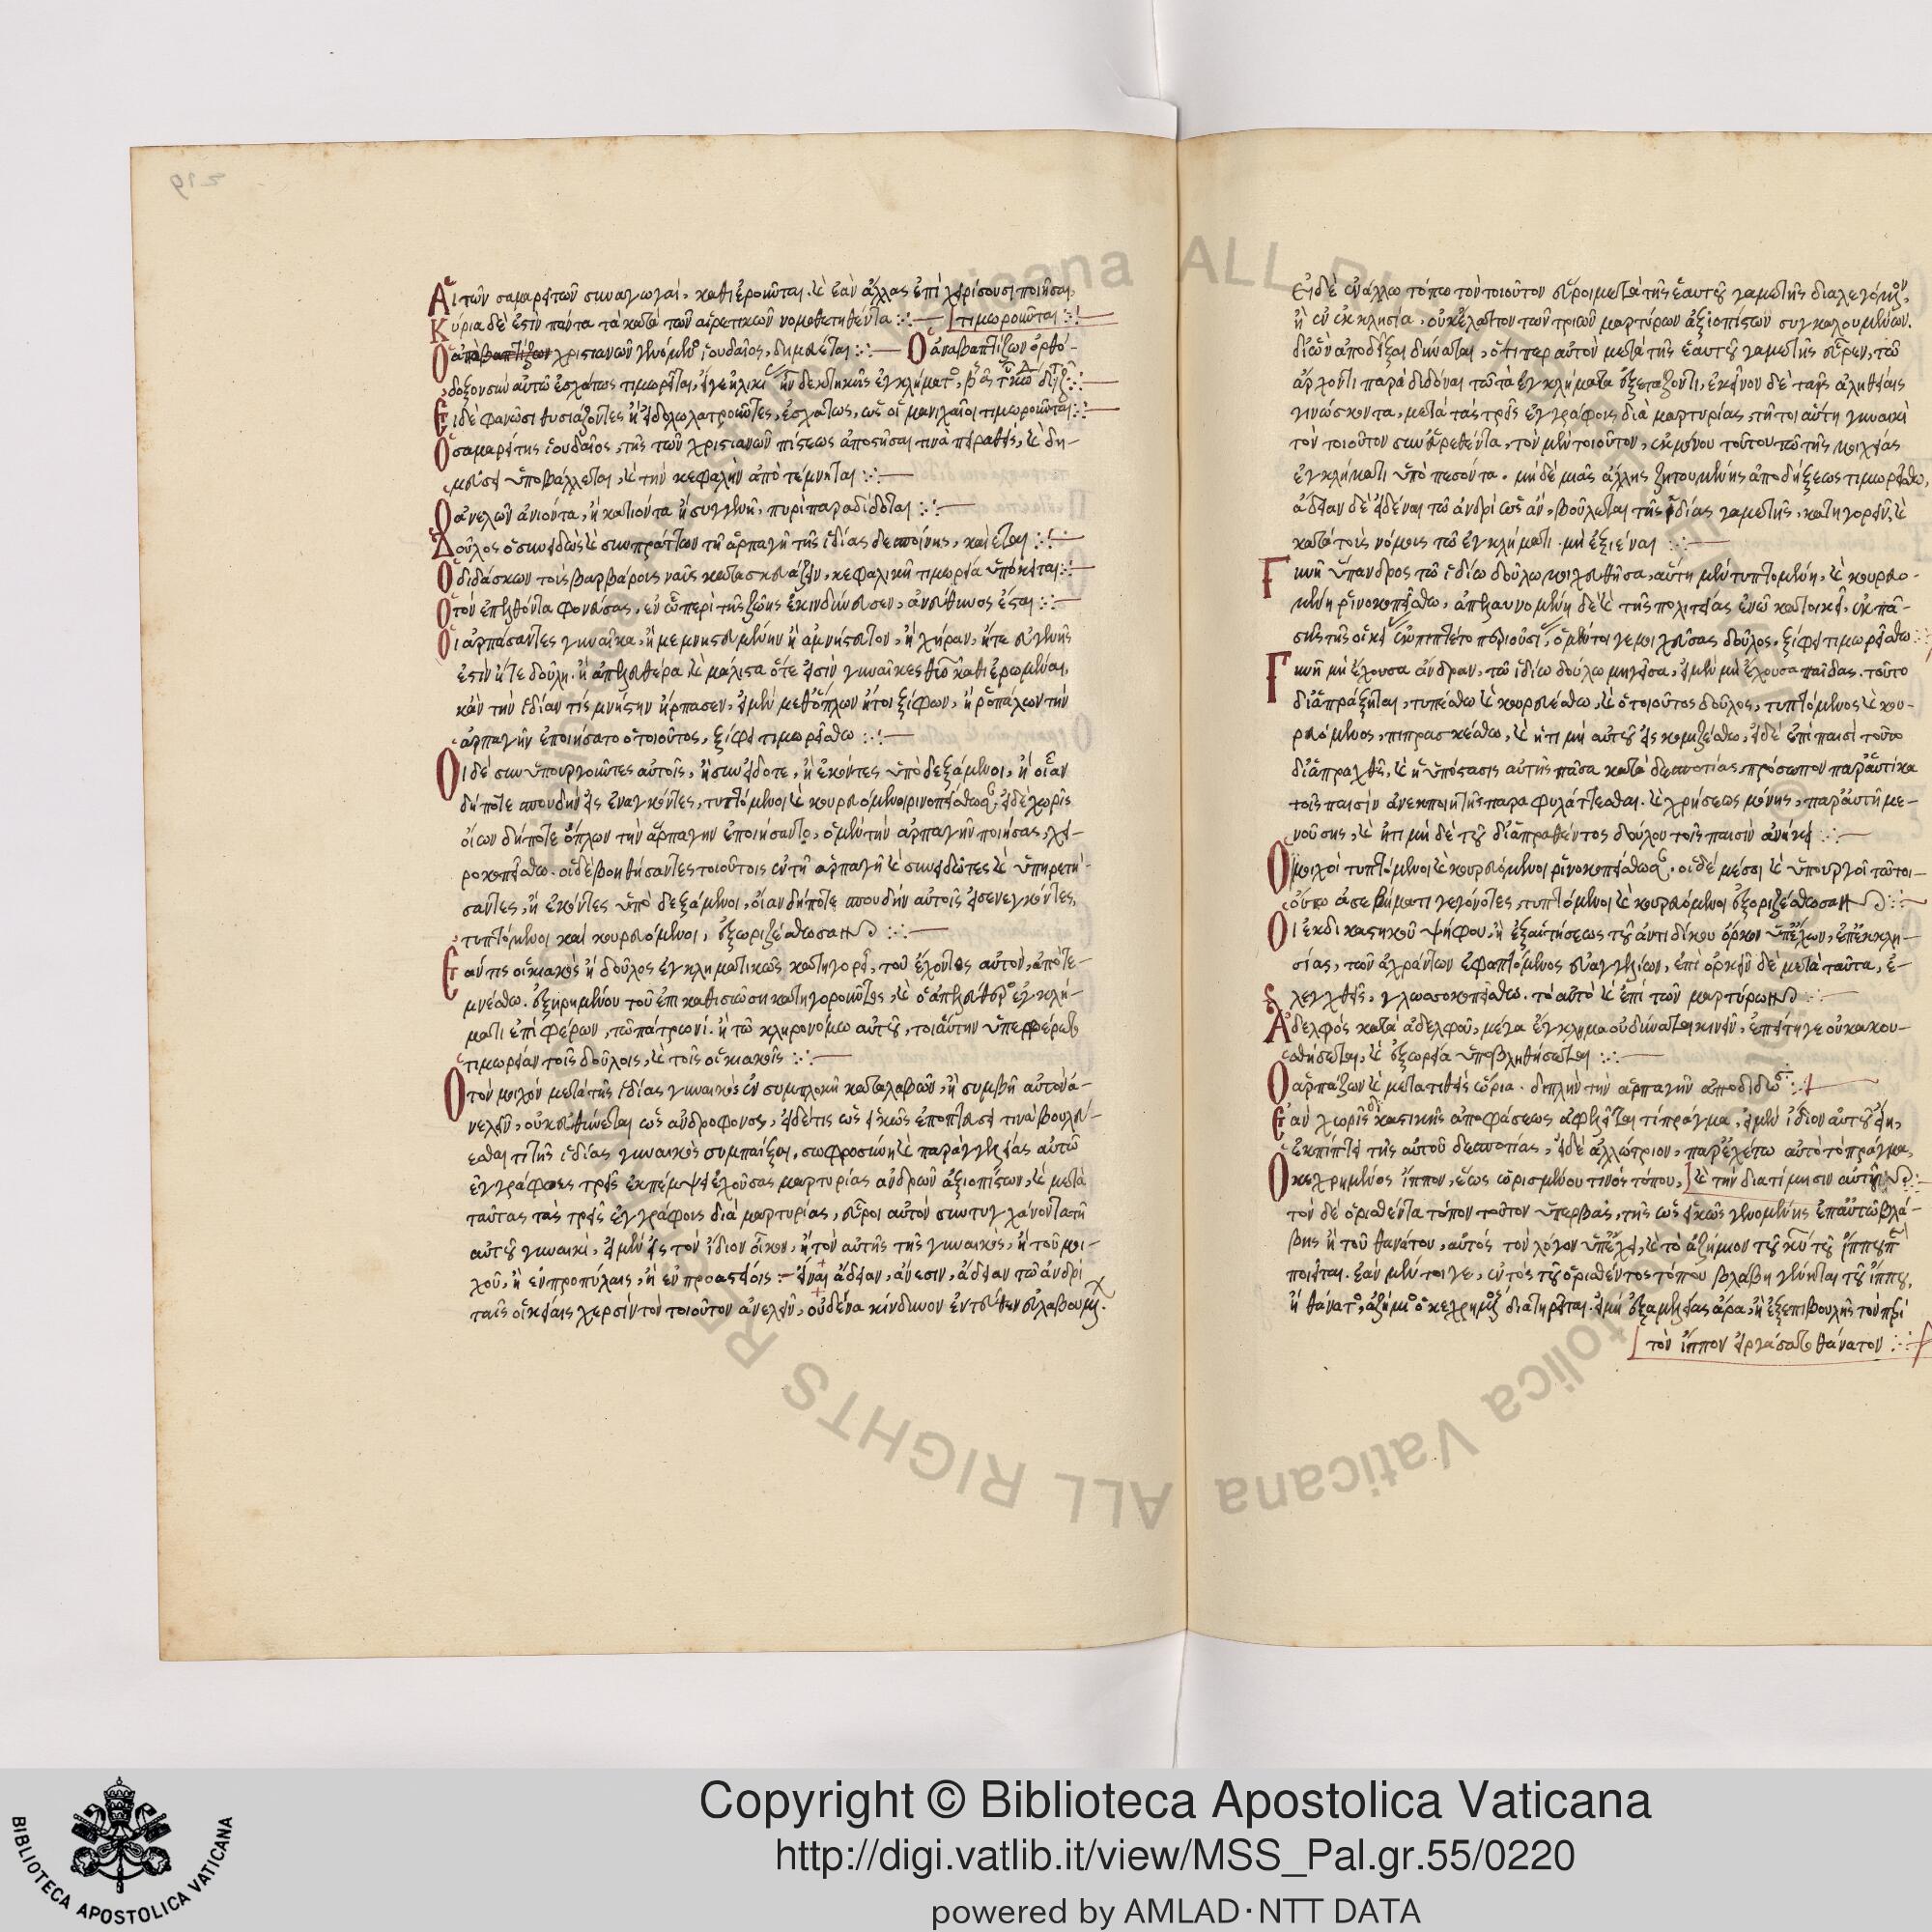 Αἱ τῶν σαμαρειτῶν συναγωγαὶ, καθιεροῦνται. καὶ ἐὰν ἄλλας ἐπιχειρίσουσι ποιῆσαι,
τιμωροῦνται
Κύρια δὲ ἐστὶν πάντα τὰ κατὰ τῶν αἱρετικῶν νομοθετηθέντα
χριστιανῶν γενόμενος ἰουδαῖος, δημεύεται Ὁ ἀναβαπτίζων ὀρθό-
δοξον σὺν αὐτῶ ἐσχάτως τιμωρεῖται,
Εἰ δὲ φανῶσι θυσιάζοντες ἢ εἰδολωλατροῦντες, ἐσχάτως, ὡς οἱ μανιχαῖοι τιμωροῦνται
Ὁ σαμαρείτης ἰουδαῖος, τῆς τῶν χριστιανῶν πίστεως ἀποστῆσαι τινὰ πειραθεὶς, καὶ δη-
μεύσει ὑποβάλλεται, καὶ τὴν κεφαλὴν ἀποτέμνηται
Ὁ ἀνελῶν ἀνιόντα, ἢ κατιόντα ἢ συγγενῆ, πυρὶ παραδίδοται
Δοῦλος ὁ συνειδὼς καὶ συμπράττων τῆ ἁρπαγῆ τῆς ἰδίας δεσποίνης, καίεται
Ὁ διδάσκων τοὺς βαρβάρους ναῦς κατασκευάζειν, κεφαλικῆ τιμωρεία ὑπόκειται
Ὁ τὸν ἐπελθόντα φονεύσας, ἐν ᾧ περὶ τῆς ζωῆς ἐκινδύνευσεν, ἀνεύθυνος ἔσται
Οἱ ἁρπάσαντες γυναῖκα, ἢ μεμνηστευμένην ἢ ἀμνήστευτον, ἢ χήραν, εἴτε εὐγενὴς
ἐστὶν εἴτε δούλη. ἢ ἀπελευθέρα καὶ μάλιστα ὅτε εἰσὶν γυναῖκες θεῶ καθιερωμέναι,
κἂν τὴν ἰδίαν τίς μνήστην ἥρπασεν, εἰ μὲν μεθ' ὅπλων ἤτοι ξίφων, ἢ ῥοπάλων τὴν
ἁρπαγὴν ἐποιήσατο ὁ τοιοῦτος, ξίφει τιμωρείσθω
Οἱ δὲ συνυπουργοῦντες αὐτοῖς, ἢ συνειδότε, ἢ ἑκόντες ὑποδεξάμενοι, ἢ οἵαν
δήποτε σπουδὴν εἰσεναγκόντες, τυπτόμενοι καὶ κουρευόμενοι ρινοκοπείσθωσαν, εἰ δὲ χωρὶς
οἵων δήποτε ὅπλων τὴν ἁρπαγὴν ἐποιήσαντο, ὁ μὲν τὴν ἁρπαγὴν ποιήσας, χει-
ροκοπείσθω. οἱ δὲ βοηθήσαντες τοιούτοις ἐν τῆ ἁρπαγῆ καὶ συνειδῶτες καὶ ὑπηρετή-
σαντες, ἢ ἑκόντες ὑποδεξάμενοι, οἵαν δήποτε σπουδὴν αὐτοῖς εἰσενεγκόντες,
τυπτόμενοι καὶ κουρευόμενοι, ἐξωριζέσθωσαν
Ἐάν τις οἰκιακὸς ἢ δοῦλος ἐγκληματικῶς κατηγορεῖ, τοῦ ἔχοντος αὐτὸν, ἀποτε-
μνέσθω. ἐξηρημένου τοῦ ἐπὶ καθοσιώσει κατηγοροῦντος, καὶ ὁ ἀπελεύθερος ἐγκλή-
ματι ἐπιφέρων, τῶ πάτρωνι. ἢ τῶ κληρονόμω αὐτοῦ, τοιαύτην ὑπερφέρει
τιμωρείαν τοῖς δούλοις, καὶ τοῖς οἰκιακοῖς
Ὁ τὸν μοιχὸν μετὰ τῆς ἰδίας γυναικὸς ἐν συμπλοκῆ καταλαβῶν, ἢ συμβῆ αὐτὸν ἀ-
νελεῖν, οὐκ εὐθύνεται ὡς ἀνδροφονος, εἰ δέ τις ὡς εἰκῶς ἐποπτεύσει τινὰ βουλεύ-
εσθαι τῆ τῆς ἰδίας γυναικὸς συμπαίξαι, σωφροσύνη καὶ παραγγελείας αὐτῶ
ἐγγράφους τρεῖς ἐκπέμψει ἐχούσας μαρτυρίας ἀνδρῶν ἀξιοπίστων, καὶ μετὰ
ταύτας τὰς τρεῖς ἐγγράφους διαμαρτυρίας, εὕροι αὐτὸν συντυγχάνοντα τῆ
αὐτοῦ γυναικὶ, εἰ μὲν εἰς τὸν ἴδιον οἶκον, ἢ τὸν αὐτῆς τῆς γυναικὸς, ἢ τοῦ μοι-
χοῦ, ἢ ἐν προπύλαις, ἢ ἐν προαστείοις εἶναι ἄδειαν, ἄνεσιν, ἄδειαν τῶ ἀνδρὶ
ταῖς οἰκείαις χερσὶν τὸν τοιοῦτον ἀνελεῖν, οὐδένα κίνδυνον ἐντεῦθεν εὐλαβουμένω.
Εἰ δὲ ἐν ἄλλω τόπω τὸν τοιοῦτον εὕροι μετὰ τῆς ἑαυτοῦ γαμετῆς διαλεγόμενον,
ἢ ἐν ἐκκλησία, οὐκ ἔλαττον τῶν τριῶν μαρτύρων ἀξιοπίστων συγκαλουμένων.
δι' ὧν ἀποδεῖξαι δύναται, ὅτι περ αὐτὸν μετὰ τῆς ἑαυτοῦ γαμετῆς εὗρεν, τῶ
ἄρχοντι παραδιδόναι τῶ τὰ ἐγκλήματα ἐξετάζοντι, ἐκεῖνον δὲ ταῖς ἀληθείαις
γινώσκοντα, μετὰ τὰς τρεῖς ἐγγράφους διαμαρτυρίας, τῆ τοιαύτη γυναικὶ
τὸν τοιοῦτον συνευρεθέντα, τὸν μὲν τοιοῦτον, ἐκ μόνου τούτου τῶ τῆς μοιχείας
ἐγκλήματι ὑποπεσόντα. μηδὲ μιᾶς ἄλλης ζητουμένης ἀποδείξεως τιμωρείσθω,
ἄδειαν δὲ διδόναι τῶ ἀνδρὶ ὡς ἂν, βούλεται τῆς ἰδίας γαμετῆς, κατηγορεῖν, καὶ
κατὰ τοὺς νόμους τῶ ἐγκλήματι. μὴ ἐξιέναι
Γυνὴ ὕπανδρος τῶ ἰδίω δούλω μοιχευθῆσα, αὕτη μὲν τυπτομένη, καὶ κουρευο-
μένη ρινοκοπείσθω, ἀπελαυνομένη δὲ καὶ τῆς πολιτείας ἐν ᾧ κατοικεῖ, ἐκ πά-
σης τῆς οἰκεί ἐκπιπτέτο περιουσί, ὁ μέντοι γε μοιχεύσας δοῦλος, ξίφει τιμωρείσθω
Γυνὴ μὴ ἔχουσα ἄνδραν, τῶ ἰδίω δούλω μιγεῖσα, εἰ μὲν μὴ ἔχουσα παῖδας. τοῦτο
διαπράξηται, τυπέσθω καὶ κουρευέσθω, καὶ ὁ τοιοῦτος δοῦλος, τυπτόμενος καὶ κου-
ρευόμενος, πιπρασκέσθω, καὶ ἡ τιμὴ αὐτοῦ εἰσκομιζέσθω, εἰ δὲ ἐπὶ παισὶ τοῦτο
διαπραχθῆ, καὶ ἡ ὑπόστασις αὐτῆς πᾶσα κατὰ δεσποτίας, πρόσωπον παρ' αὐτίκα
τοῖς παισὶν ἀνεκποιητῆς παραφυλάττεσθαι. καὶ χρήσεως μόνης, παρ' αὐτῆ με-
νούσης, καὶ ἡ τιμὴ δὲ τοῦ διαπραθέντος δούλου τοῖς παισὶν ἀνήκει
Οἱ μοιχοὶ τυπτόμενοι καὶ κουρευόμενοι ρινοκοπείσθωσαν, οἱ δὲ μέσσι καὶ ὑπουργοὶ τῶ τοι-
ούτω ἀσεβήματι γεγόνοτες, τυπτόμενοι καὶ κουρευόμενοι ἐξοριζέσθωσαν
Οἱ ἐκ δικαστηκοῦ ψήφου, ἢ ἐξ αἰτήσεως τοῦ ἀντιδίκου ὅρκον ὑπέχων, ἐπ' ἐκκλη-
σίας, τῶν ἀχράντων ἐφαπτόμενος εὐαγγελίων, ἐπιορκεῖν δὲ μετὰ ταῦτα, ἐ-
λεγχθεὶς, γλωσσοκοπείσθω. τὸ αὐτὸ καὶ ἐπὶ τῶν μαρτύρων
Ἀδελφὸς κατὰ ἀδελφοῦ, μέγα ἔγκλημα οὐ δύναται κινεῖν, ἐπεί τι γε οὐκ ἀκου-
σθήσεται, καὶ ἐξωρία ὑποβληθήσεται
Ὁ ἁρπάζων καὶ μετατιθεὶς ὥρια. διπλὴν τὴν ἁρπαγὴν ἀποδιδω
Ἐὰν χωρὶς δικαστικῆς ἀποφάσεως ἀφελεῖται τί πράγμα, εἰ μὲν ἴδιον αὐτοῦ εἴη,
ἐκπίπτει τῆς αὐτοῦ δεσποτίας, εἰ δὲ ἀλλώτριον, παρεχέτω αὐτὸ τὸ πράγμα,
καὶ τὴν διατίμησιν αὐτῆς
Ὁ κεχρημένος ἵππον, ἕως ὡρισμένου τινὸς τόπου,
τὸν δὲ ὁρισθέντα τόπον τοῦτον ὑπερβὰς, τῆς ὡς εἰκῶς γενομένης ἐπ' αὐτῶ βλά-
βης ἢ τοῦ θανάτου, αὐτὸς τὸν λόγον ὑπέχει, καὶ τὸ ἀζήμιον τοῦ κυρίου τοῦ ἵππου
ποιεῖται. ἐὰν μέντοι γε, ἐντὸς τοῦ ὁρισθέντος τόπου βλάβη γένηται τοῦ ἵππου,
ἢ θάνατος, ἀζήμιος ὁ κεχρημένος διατηρεῖται. εἰ μὴ ἐξ ἀμελείας ἄρα, ἢ ἐξ ἐπιβουλῆς τοῦ περὶ
τὸν ἵππον εἰργάσατο θάνατον
219
Copyright © Biblioteca Apostolica Vaticana
http://digi.vatlib.it/view/MSS_Pal.gr.55/0220
powered by AMLAD·NTT DATA
BIBLIOTECA APOSTOLICA VATICANA